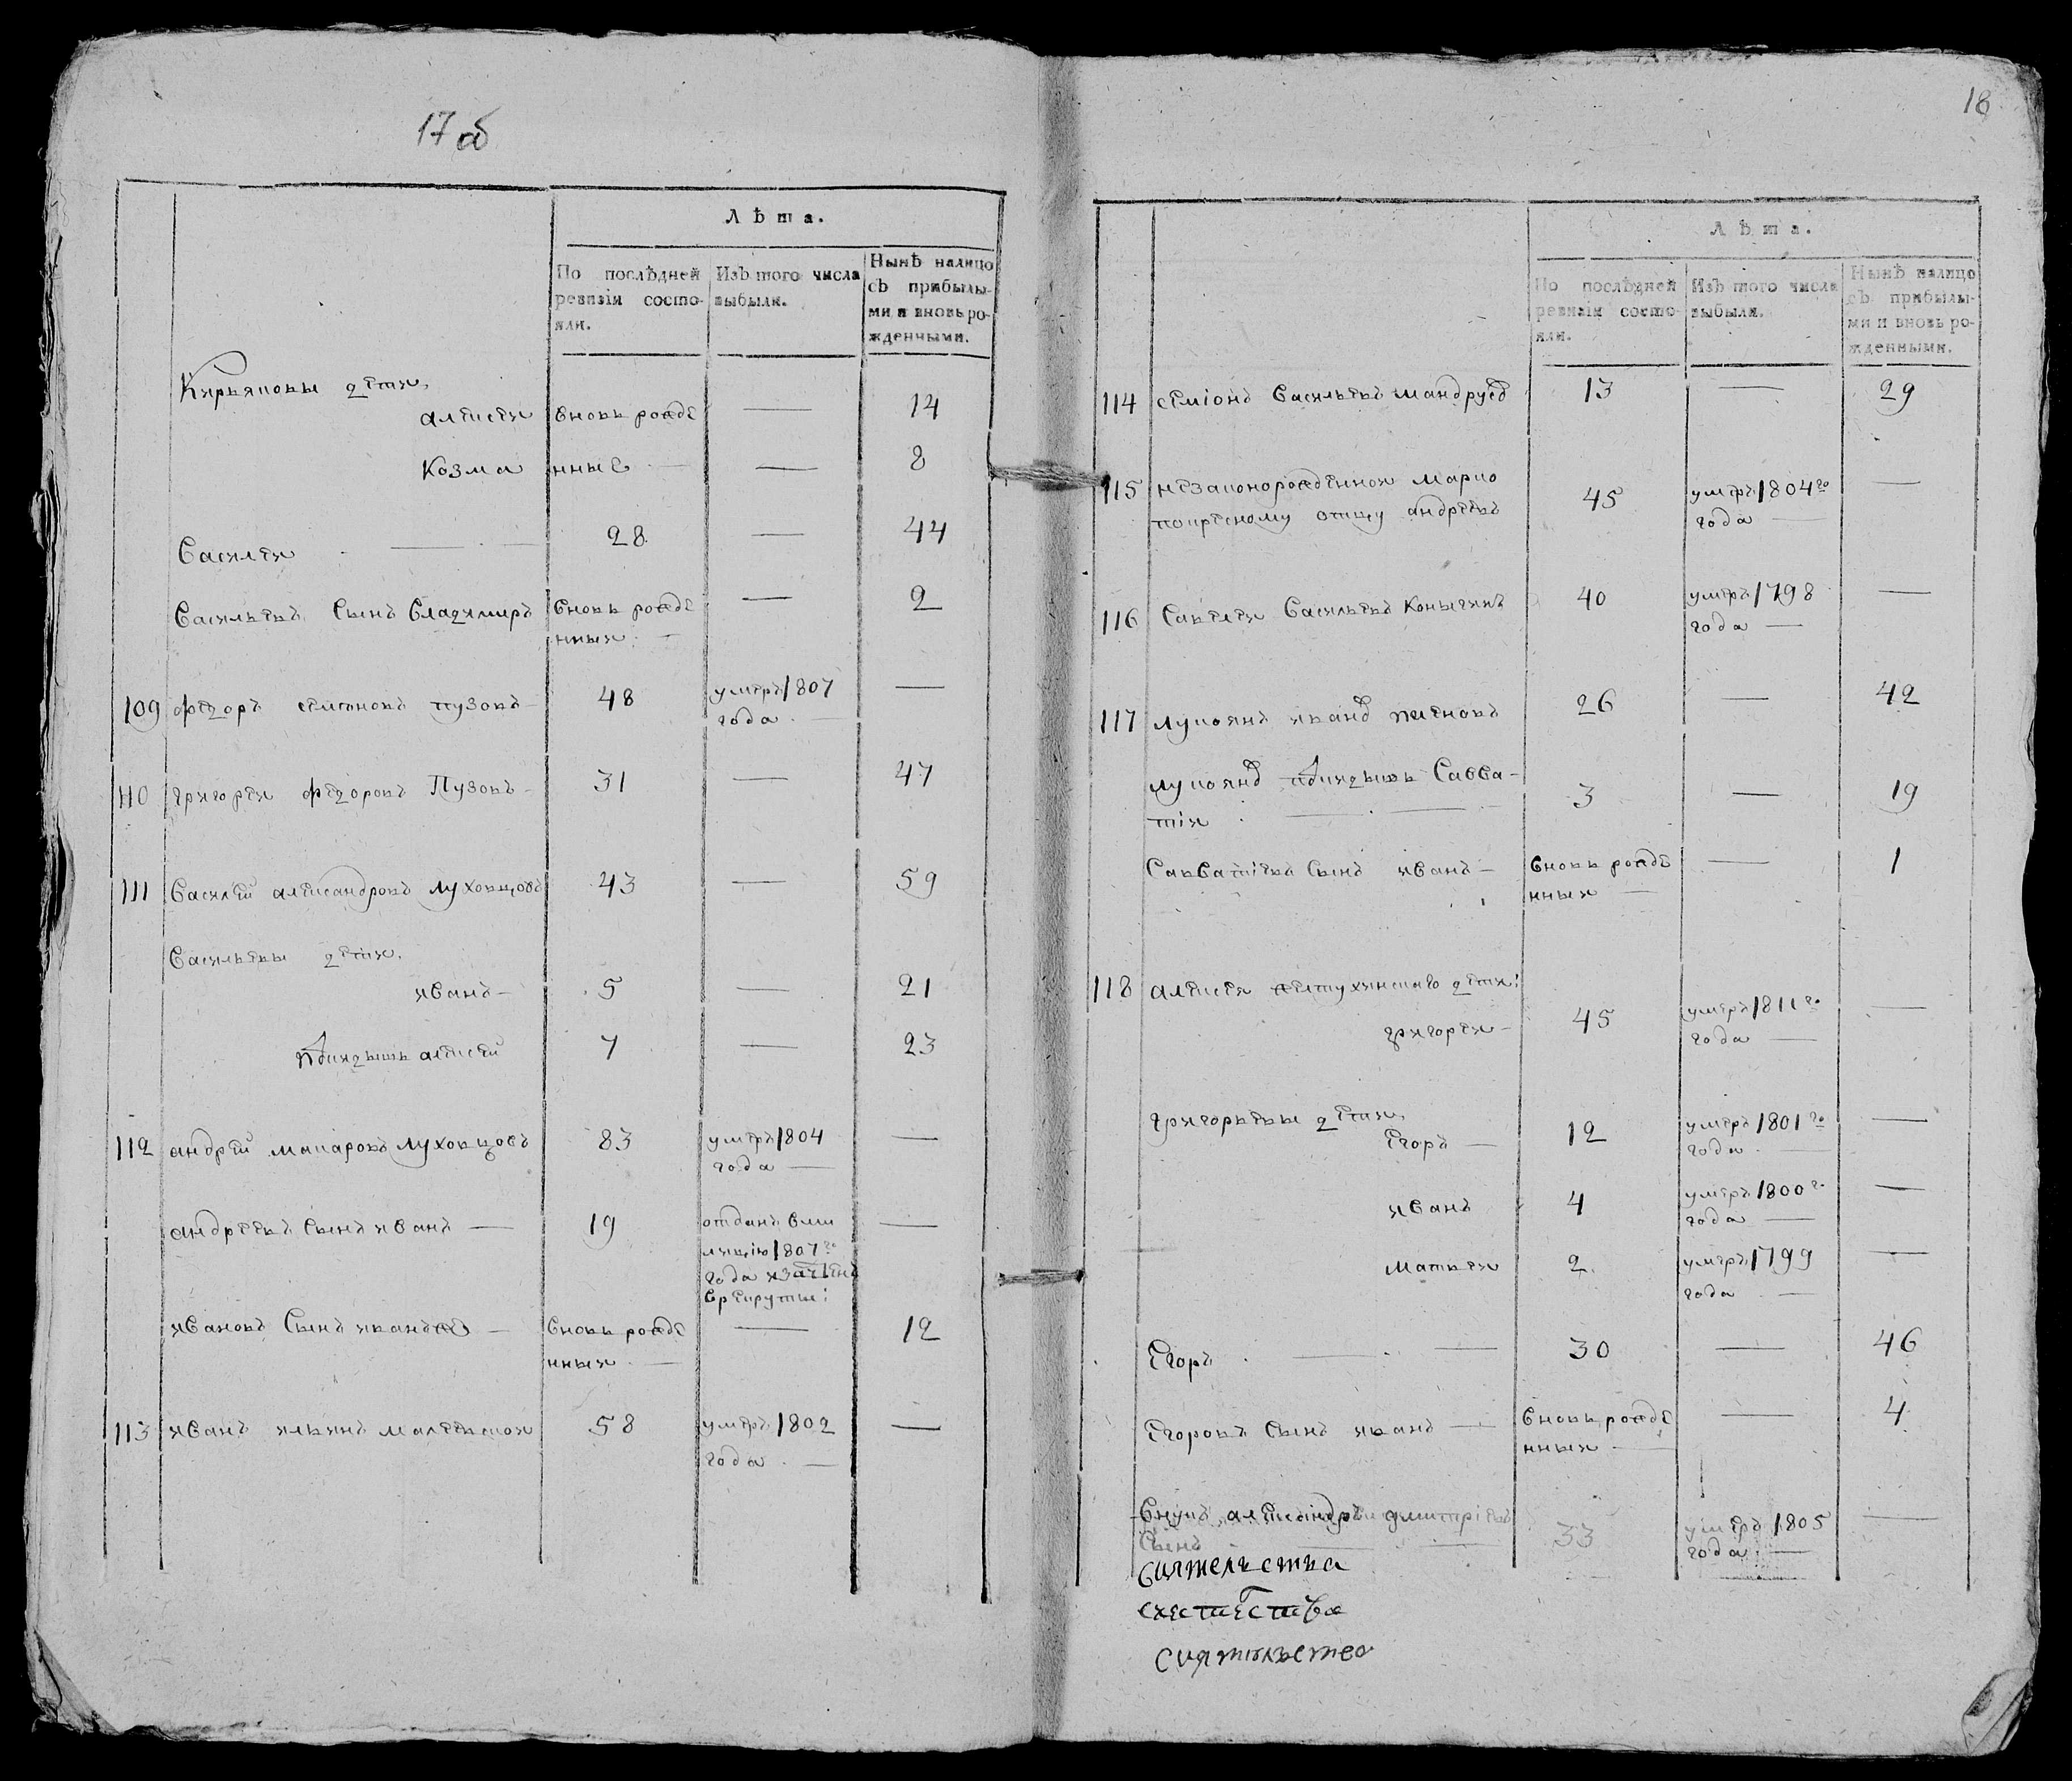 17 об
Лѣта.
По послѣдней ревизіи состояли.
Изъ того числа выбыли.
Нынѣ налицо съ прибылыми и вновь рожденными.
Кирьяновы дети,
алексеи вновь рожде — 14
Козма нные — — 8
Василеи — 28 — 44
Васильевъ Сынъ Владимиръ вновь рожде — 2
нныи —
109 Федоръ семионовъ пузовъ — 48 умеръ 1807 —
года —
110 григореи федоровъ Пузовъ — 31 — 47
111 Василеи александровъ луховцовъ 43 — 59
Васильевы дети,
иванъ — 5 — 21
алексеи 7 — 23
112 андреи макаровъ луховцовъ 83 умеръ 1804 —
года —
андреевъ Сынъ иванъ — 19 отданъ вми —
лицію 1807 го
года изачтенъ
врекруты:
ивановъ Сынъ иванъ — вновь рожде — 12
нныи —
113 иванъ ильинъ 58 умеръ 1802 —
года —
18
Лѣта.
По послѣдней ревизіи состояли.
Изъ того числа выбыли.
Нынѣ налицо съ прибылыми и вновь рожденными.
114 семіонъ Васильевъ 13 — 29
115 незаконорожденнои марко 45 умеръ 1804 го —
покресному отцу андреевъ года —
116 Савелеи Васильевъ 40 умеръ 1798 —
года —
117 лукоянъ иванъ 26 — 42
лукоянъ Савва- 3 — 19
тіи — —
Савватіевъ Сынъ иванъ — вновь рожде — 1
нныи —
118 алексея дети:
григореи — 45 умеръ 1811 го —
года —
григорьевы дети,
Егоръ — 12 умеръ 1801 го —
года —
иванъ 4 умеръ 1800 г. —
года —
матвеи 2. умеръ 1799 —
года —
Егоръ. — — 30 — 46
Егоровъ Сынъ иванъ — вновь рожде — 4
нныи —
Внукъ александръ дмитріевъ 33 умеръ 1805 —
Сынъ — — года —